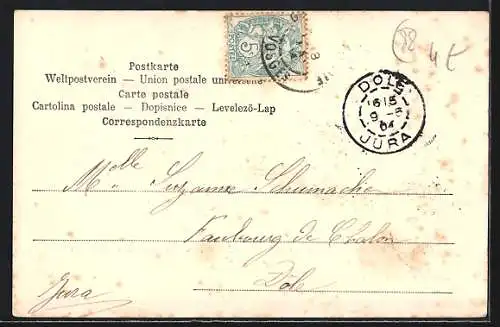 Postkarte
Weltpostverein – Union postale universelle
Carte postale
Cartolina postale – Dopisnice – Levelező-Lap
Correspondenzkarte
5
VOSG
DOLE
6 15
9 - 6
04
JURA
4 €
Melle Suzanne Schumacher
Faubourg de Chalon
Dole
Jura